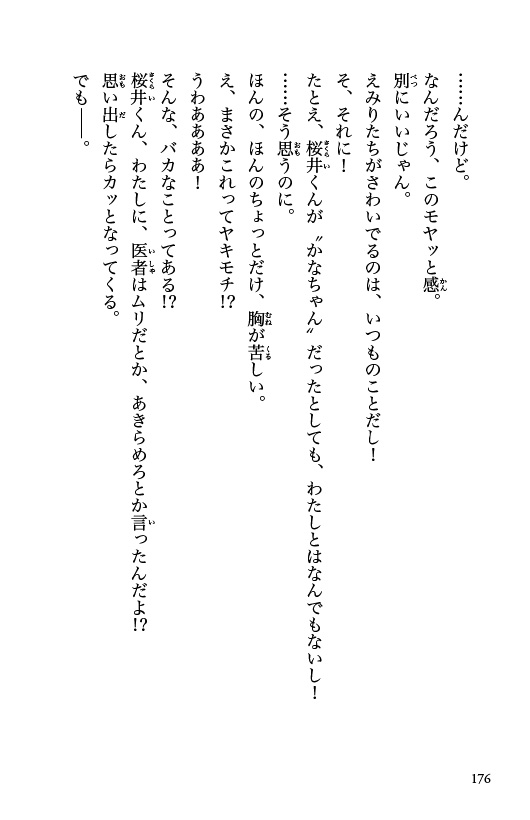 ……んだけど。
なんだろう、このモヤッと感。
別にいいじゃん。
えみりたちがさわいでるのは、いつものことだし！
そ、それに！
たとえ、桜井くんが〝かなちゃん〟だったとしても、わたしとはなんでもないし！
……そう思うのに。
ほんの、ほんのちょっとだけ、胸が苦しい。
え、まさかこれってヤキモチ!?
うわああああ！
そんな、バカなことってある!?
桜井くん、わたしに、医者はムリだとか、あきらめろとか言ったんだよ!?
思い出したらカッとなってくる。
でも——。
176